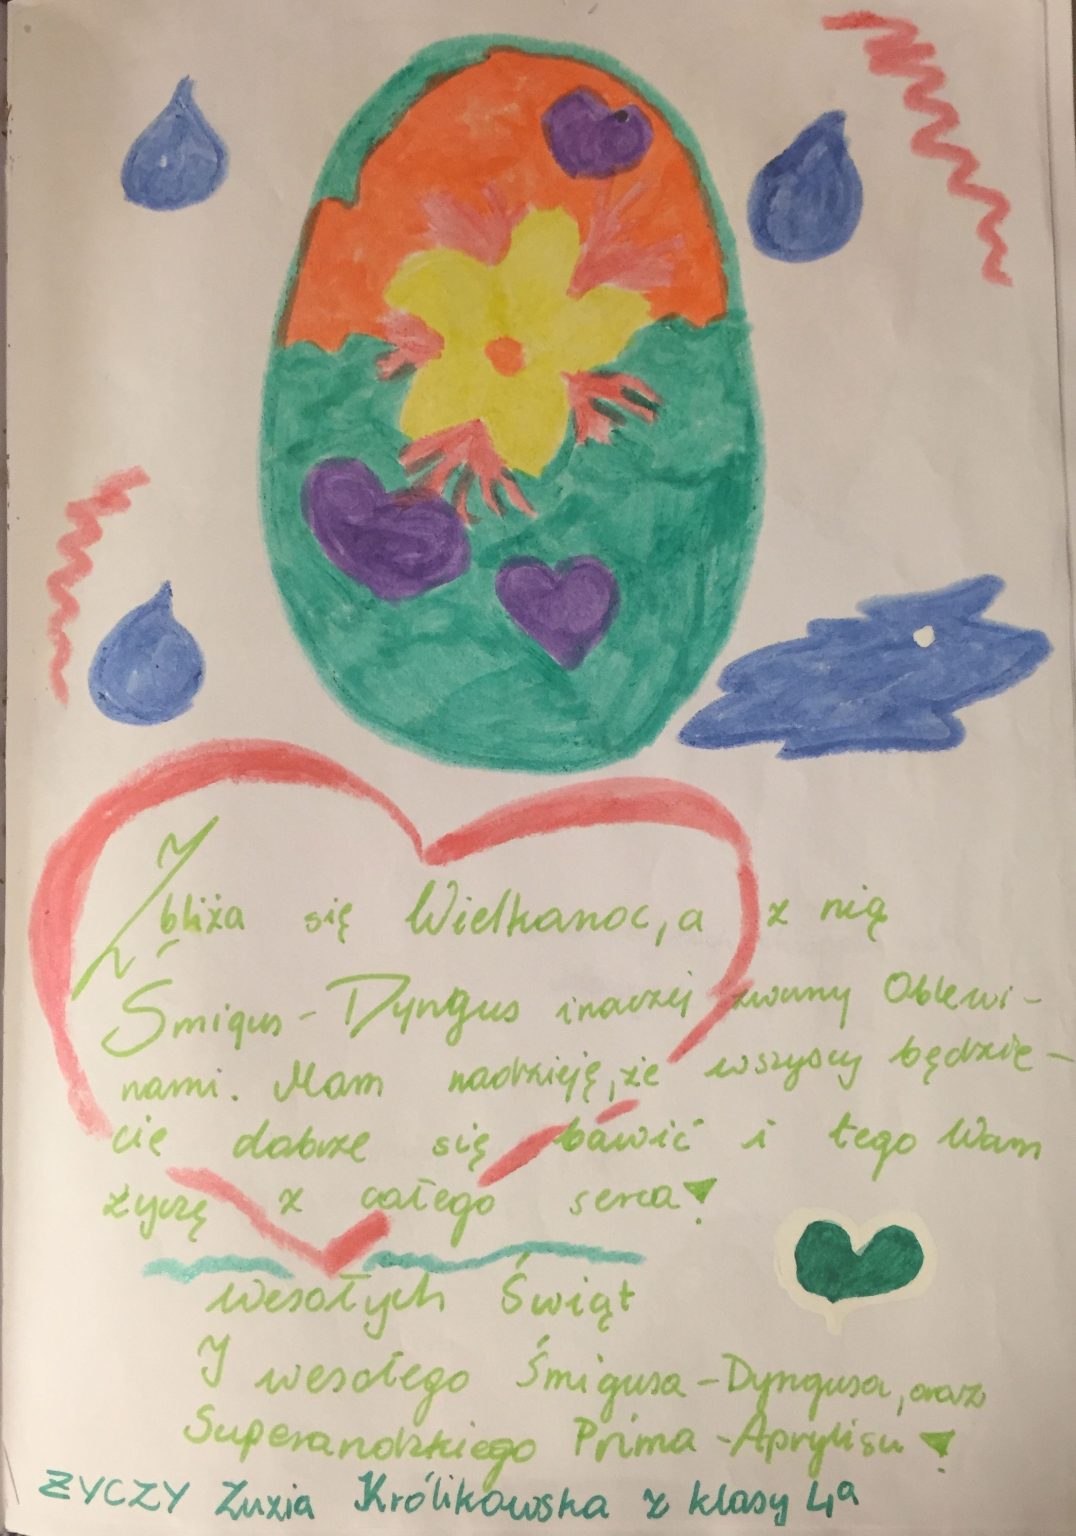 Zbliża się Wielkanoc, a z nią
Śmigus-Dyngus inaczej zwany Oblewi-
nami. Mam nadzieję, że wszyscy będzie-
cie dobrze się bawić i tego Wam
życzę z całego serca!
Wesołych Świąt
I wesołego Śmigusa-Dyngusa, oraz
Superandzkiego Prima-Aprylisu!
ZYCZY Zuzia Królikowska z klasy 4a